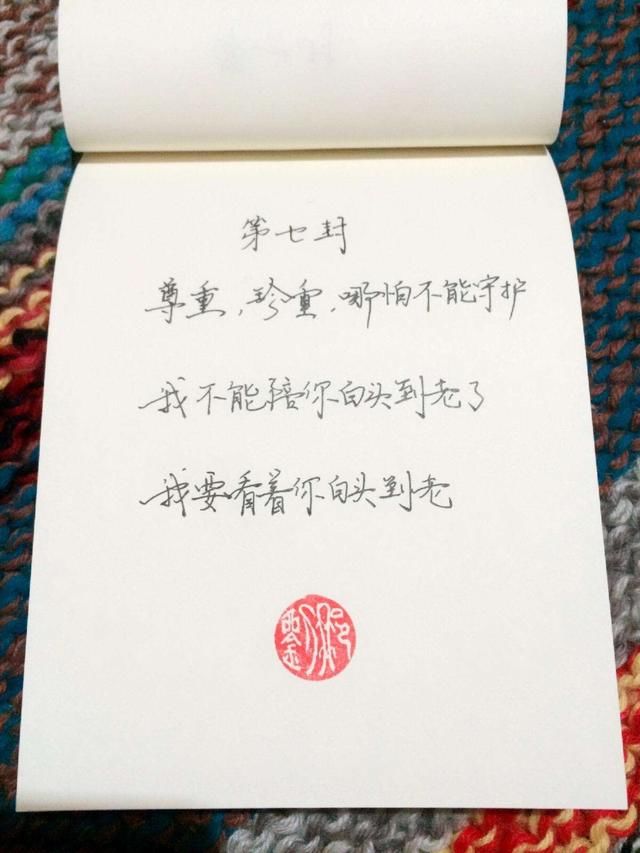 第七封
尊重，珍重，哪怕不能守护
我不能陪你白头到老了
我要看着你白头到老